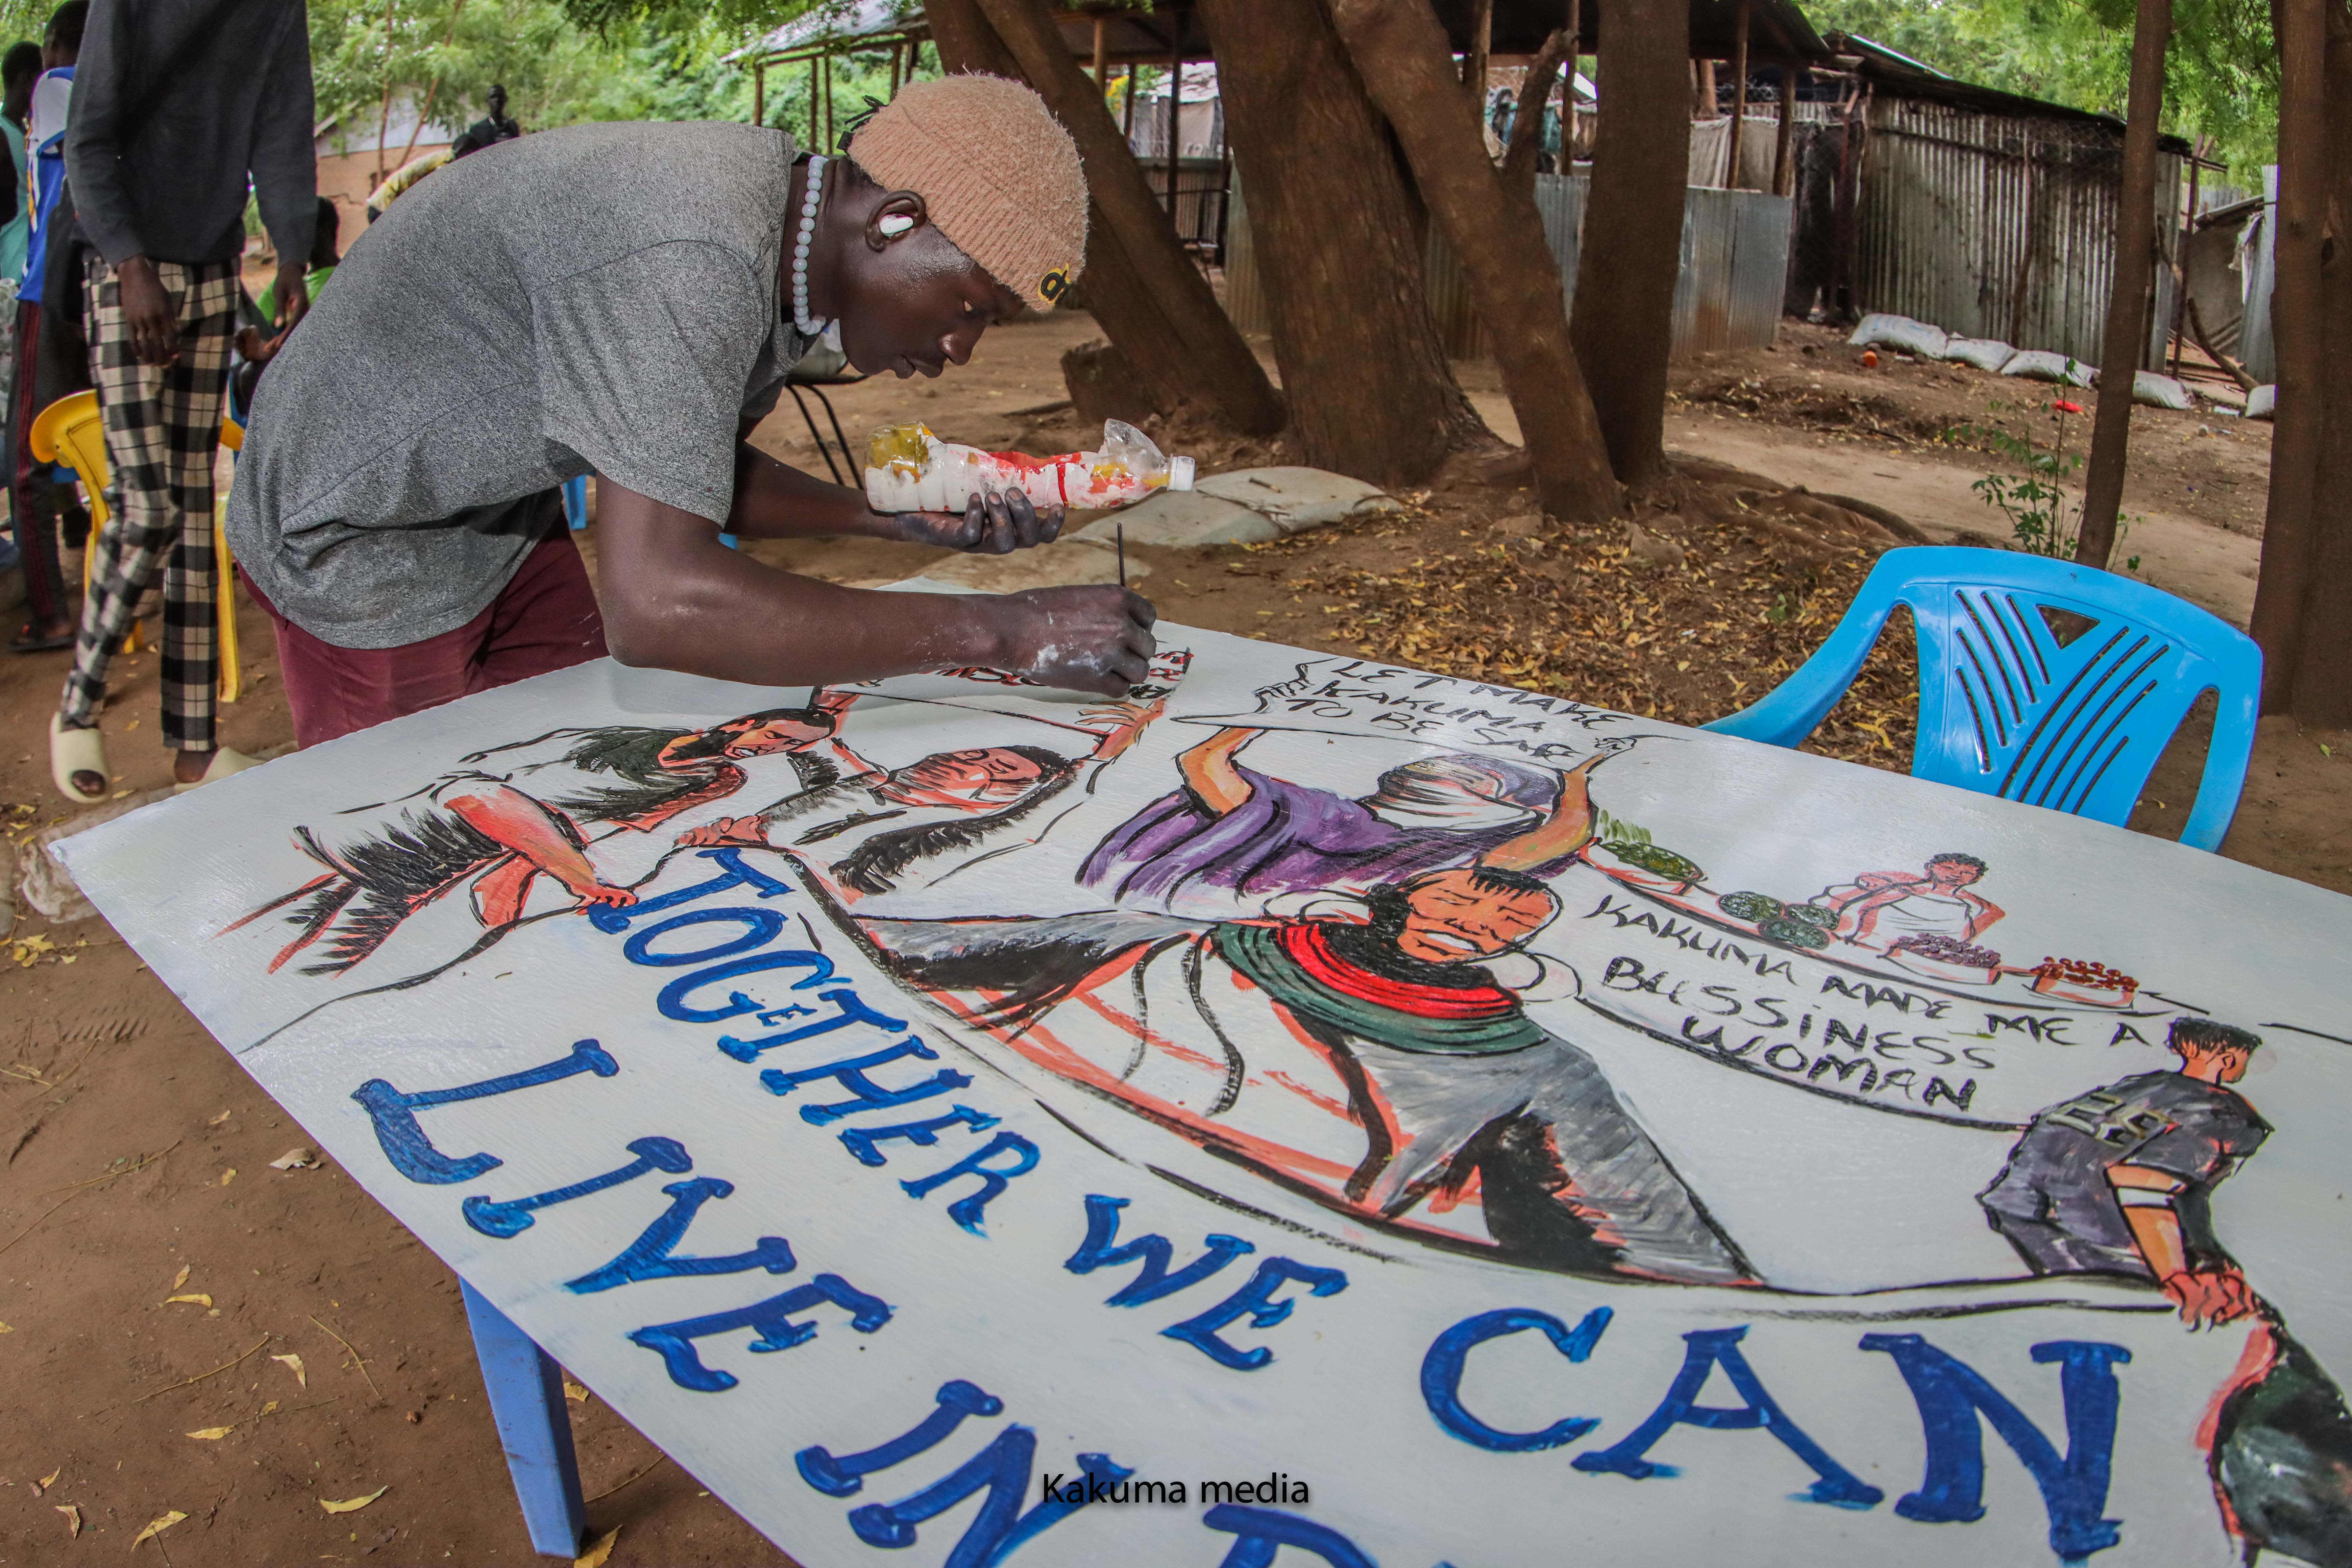 LET MAKE
KAKUMA
TO BE SAFE
KAKUMA MADE ME A
BUSSINESS
WOMAN
TOGETHER WE CAN
LIVE IN
Kakuma media